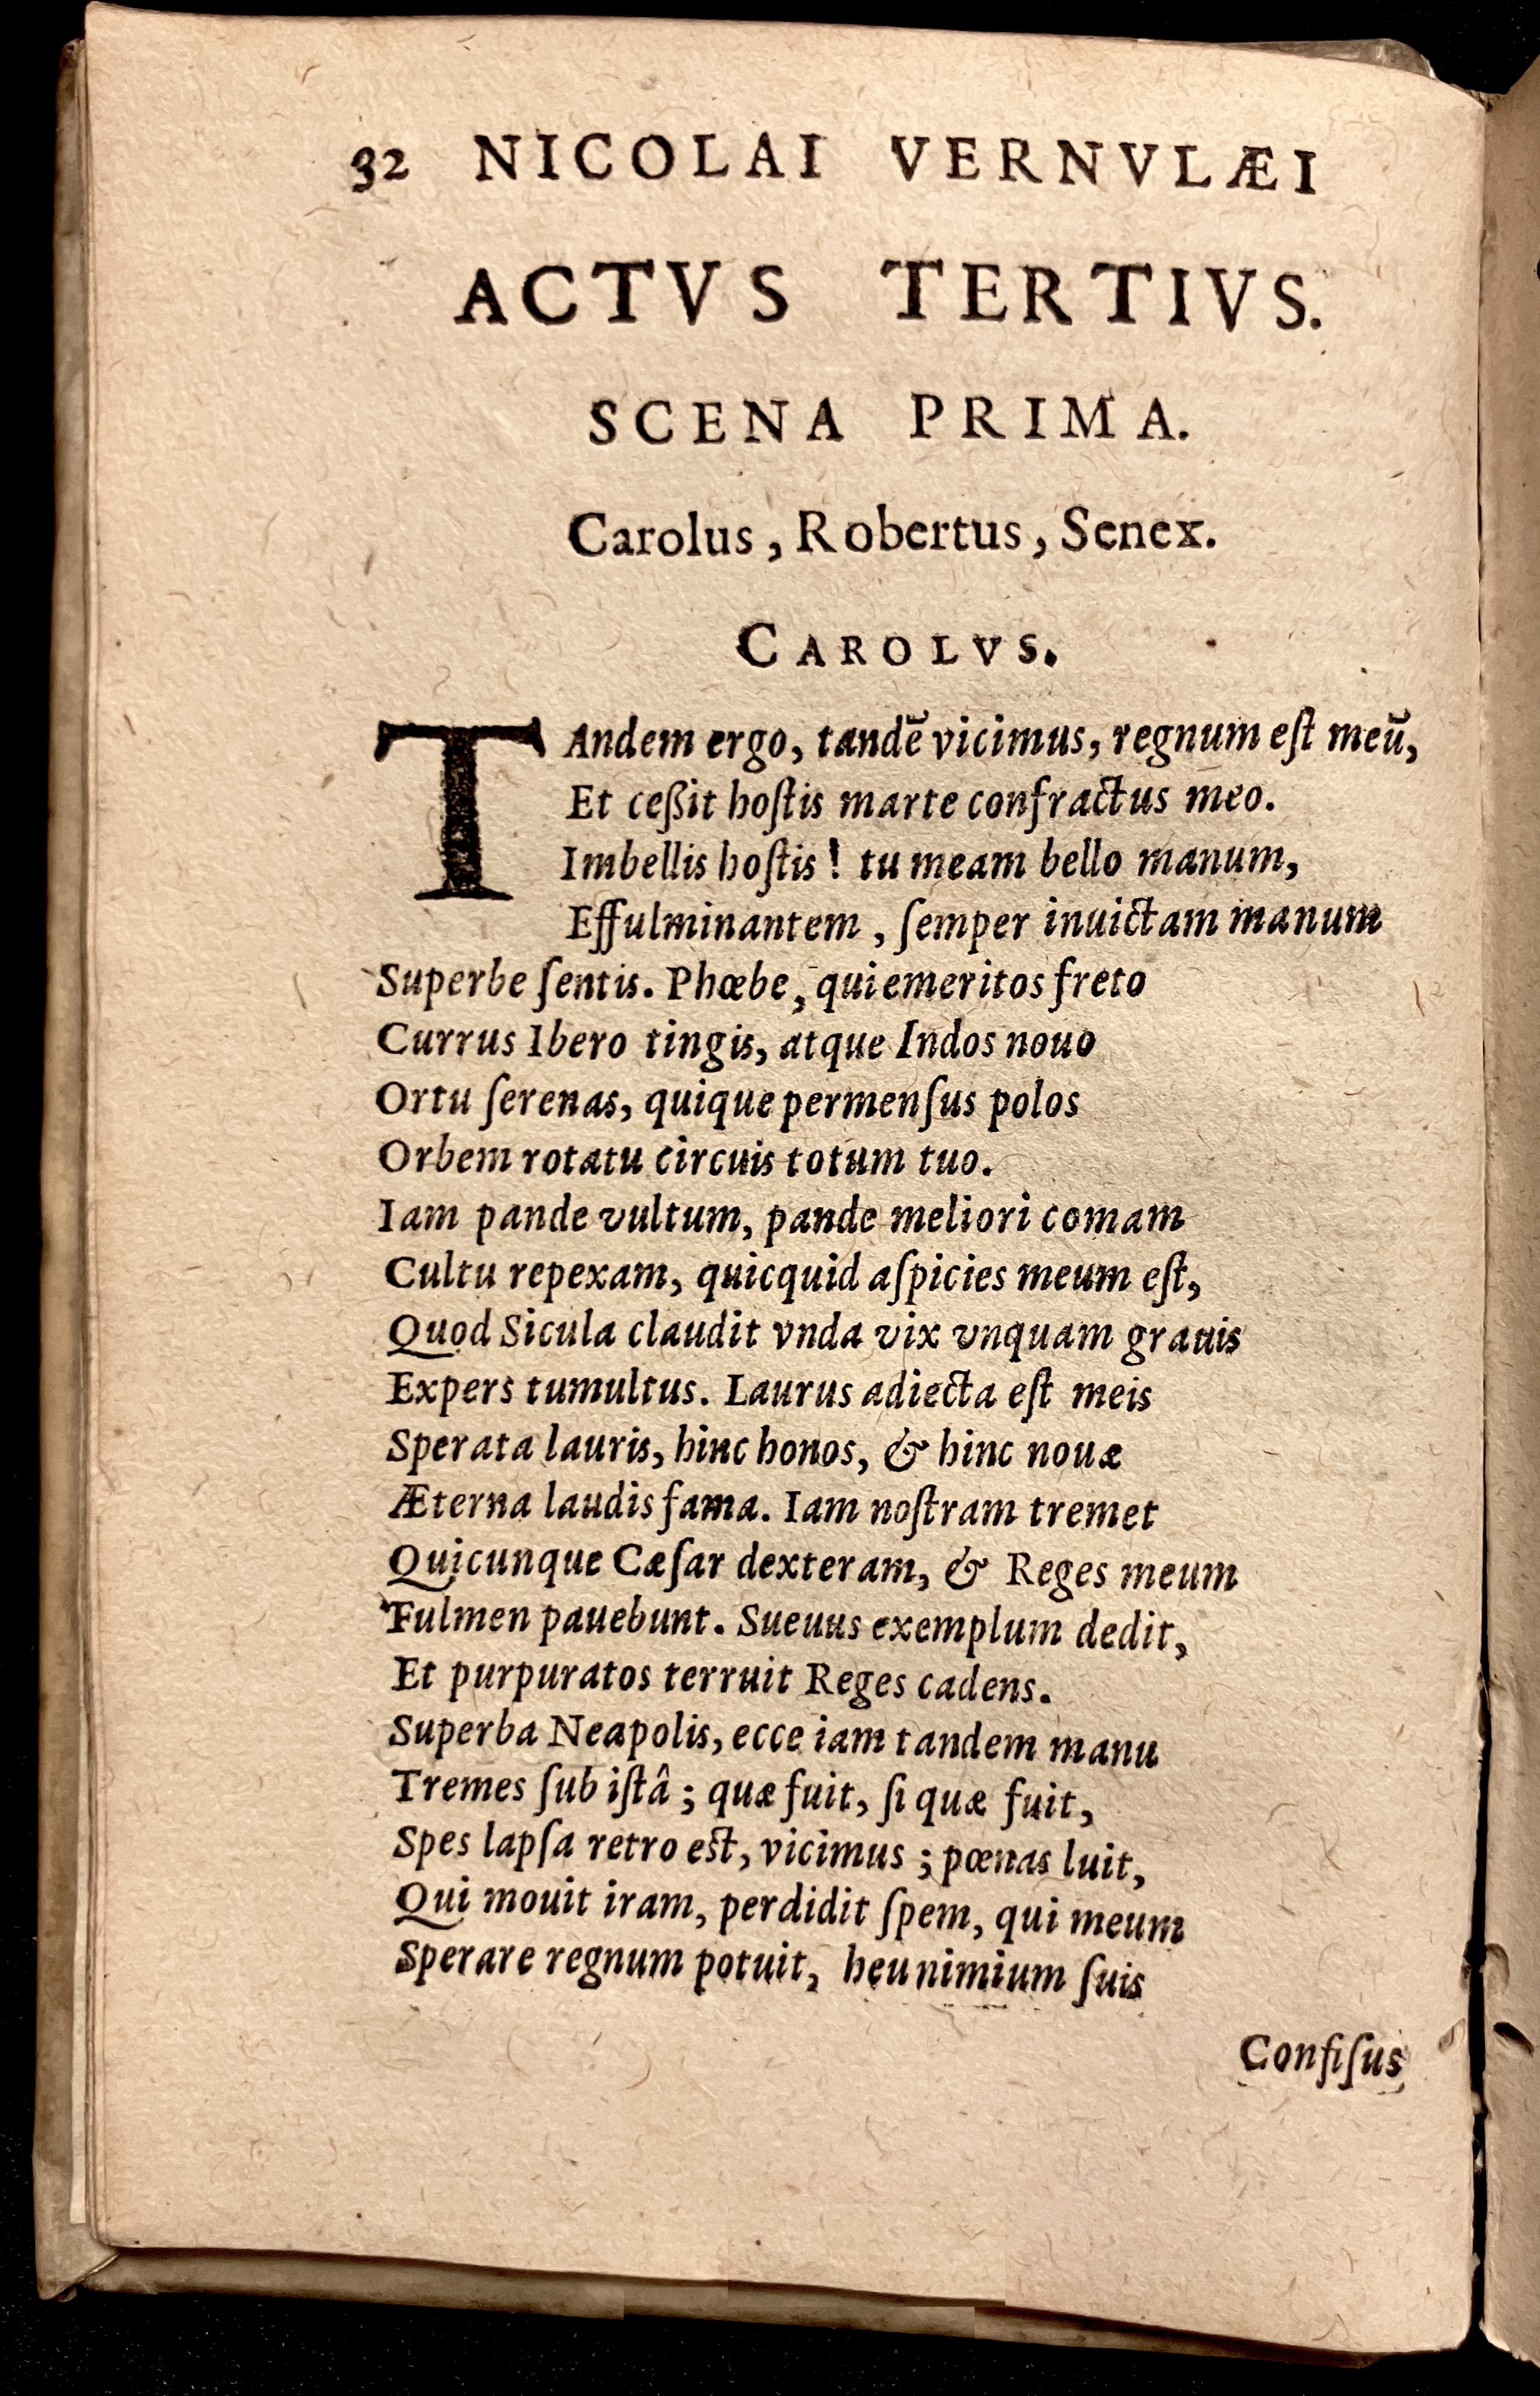 32 NICOLAI VERNVLÆI
ACTVS TERTIVS.
SCENA PRIMA.
Carolus, Robertus, Senex.
CAROLVS.
TAndem ergo, tandē vicimus, regnum eſt meū,
Et ceßit hoſtis marte confractus meo.
Imbellis hoſtis! tu meam bello manum,
Effulminantem, ſemper inuictam manum
Superbe ſentis. Phœbe, qui emeritos freto
Currus Ibero tingis, atque Indos nouo
Ortu ſerenas, quique permenſus polos
Orbem rotatu circuis totum tuo.
Iam pande vultum, pande meliori comam
Cultu repexam, quicquid aſpicies meum eſt,
Quod Sicula claudit vnda vix vnquam grauis
Expers tumultus. Laurus adiecta eſt meis
Sperata lauris, hinc honos, & hinc nouæ
Æterna laudis fama. Iam noſtram tremet
Quicunque Cæſar dexteram, & Reges meum
Fulmen pauebunt. Sueuus exemplum dedit,
Et purpuratos terruit Reges cadens.
Superba Neapolis, ecce iam tandem manu
Tremes ſub iſtâ; quæ fuit, ſi quæ fuit,
Spes lapſa retro eſt, vicimus; pœnas luit,
Qui mouit iram, perdidit ſpem, qui meum
Sperare regnum potuit, heu nimium ſuis
Confiſus